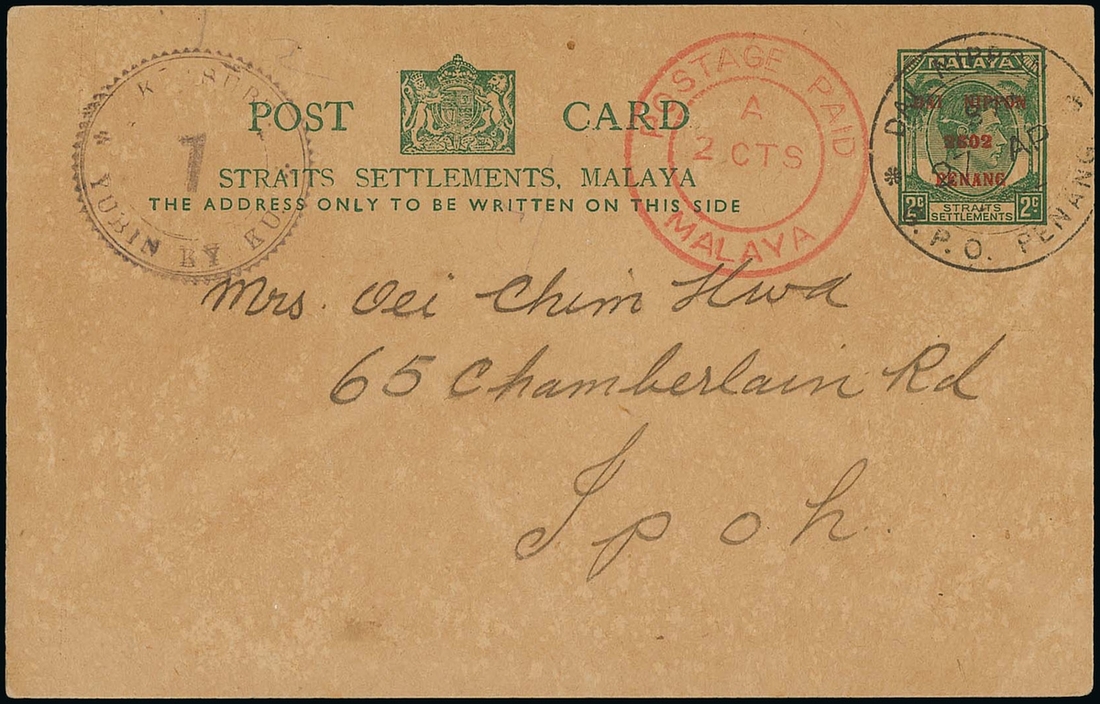 POST CARD
STRAITS SETTLEMENTS, MALAYA
THE ADDRESS ONLY TO BE WRITTEN ON THIS SIDE
1
YUBIN KY KU
POSTAGE PAID
A
2 CTS
MALAYA
MALAYA
DAI NIPPON
2602
PENANG
2c STRAITS SETTLEMENTS 2c
DAI NIPPON
G.P.O. PENANG
AP
Mrs. Oei Chim Hwa
65 Chamberlain Rd
Ipoh.